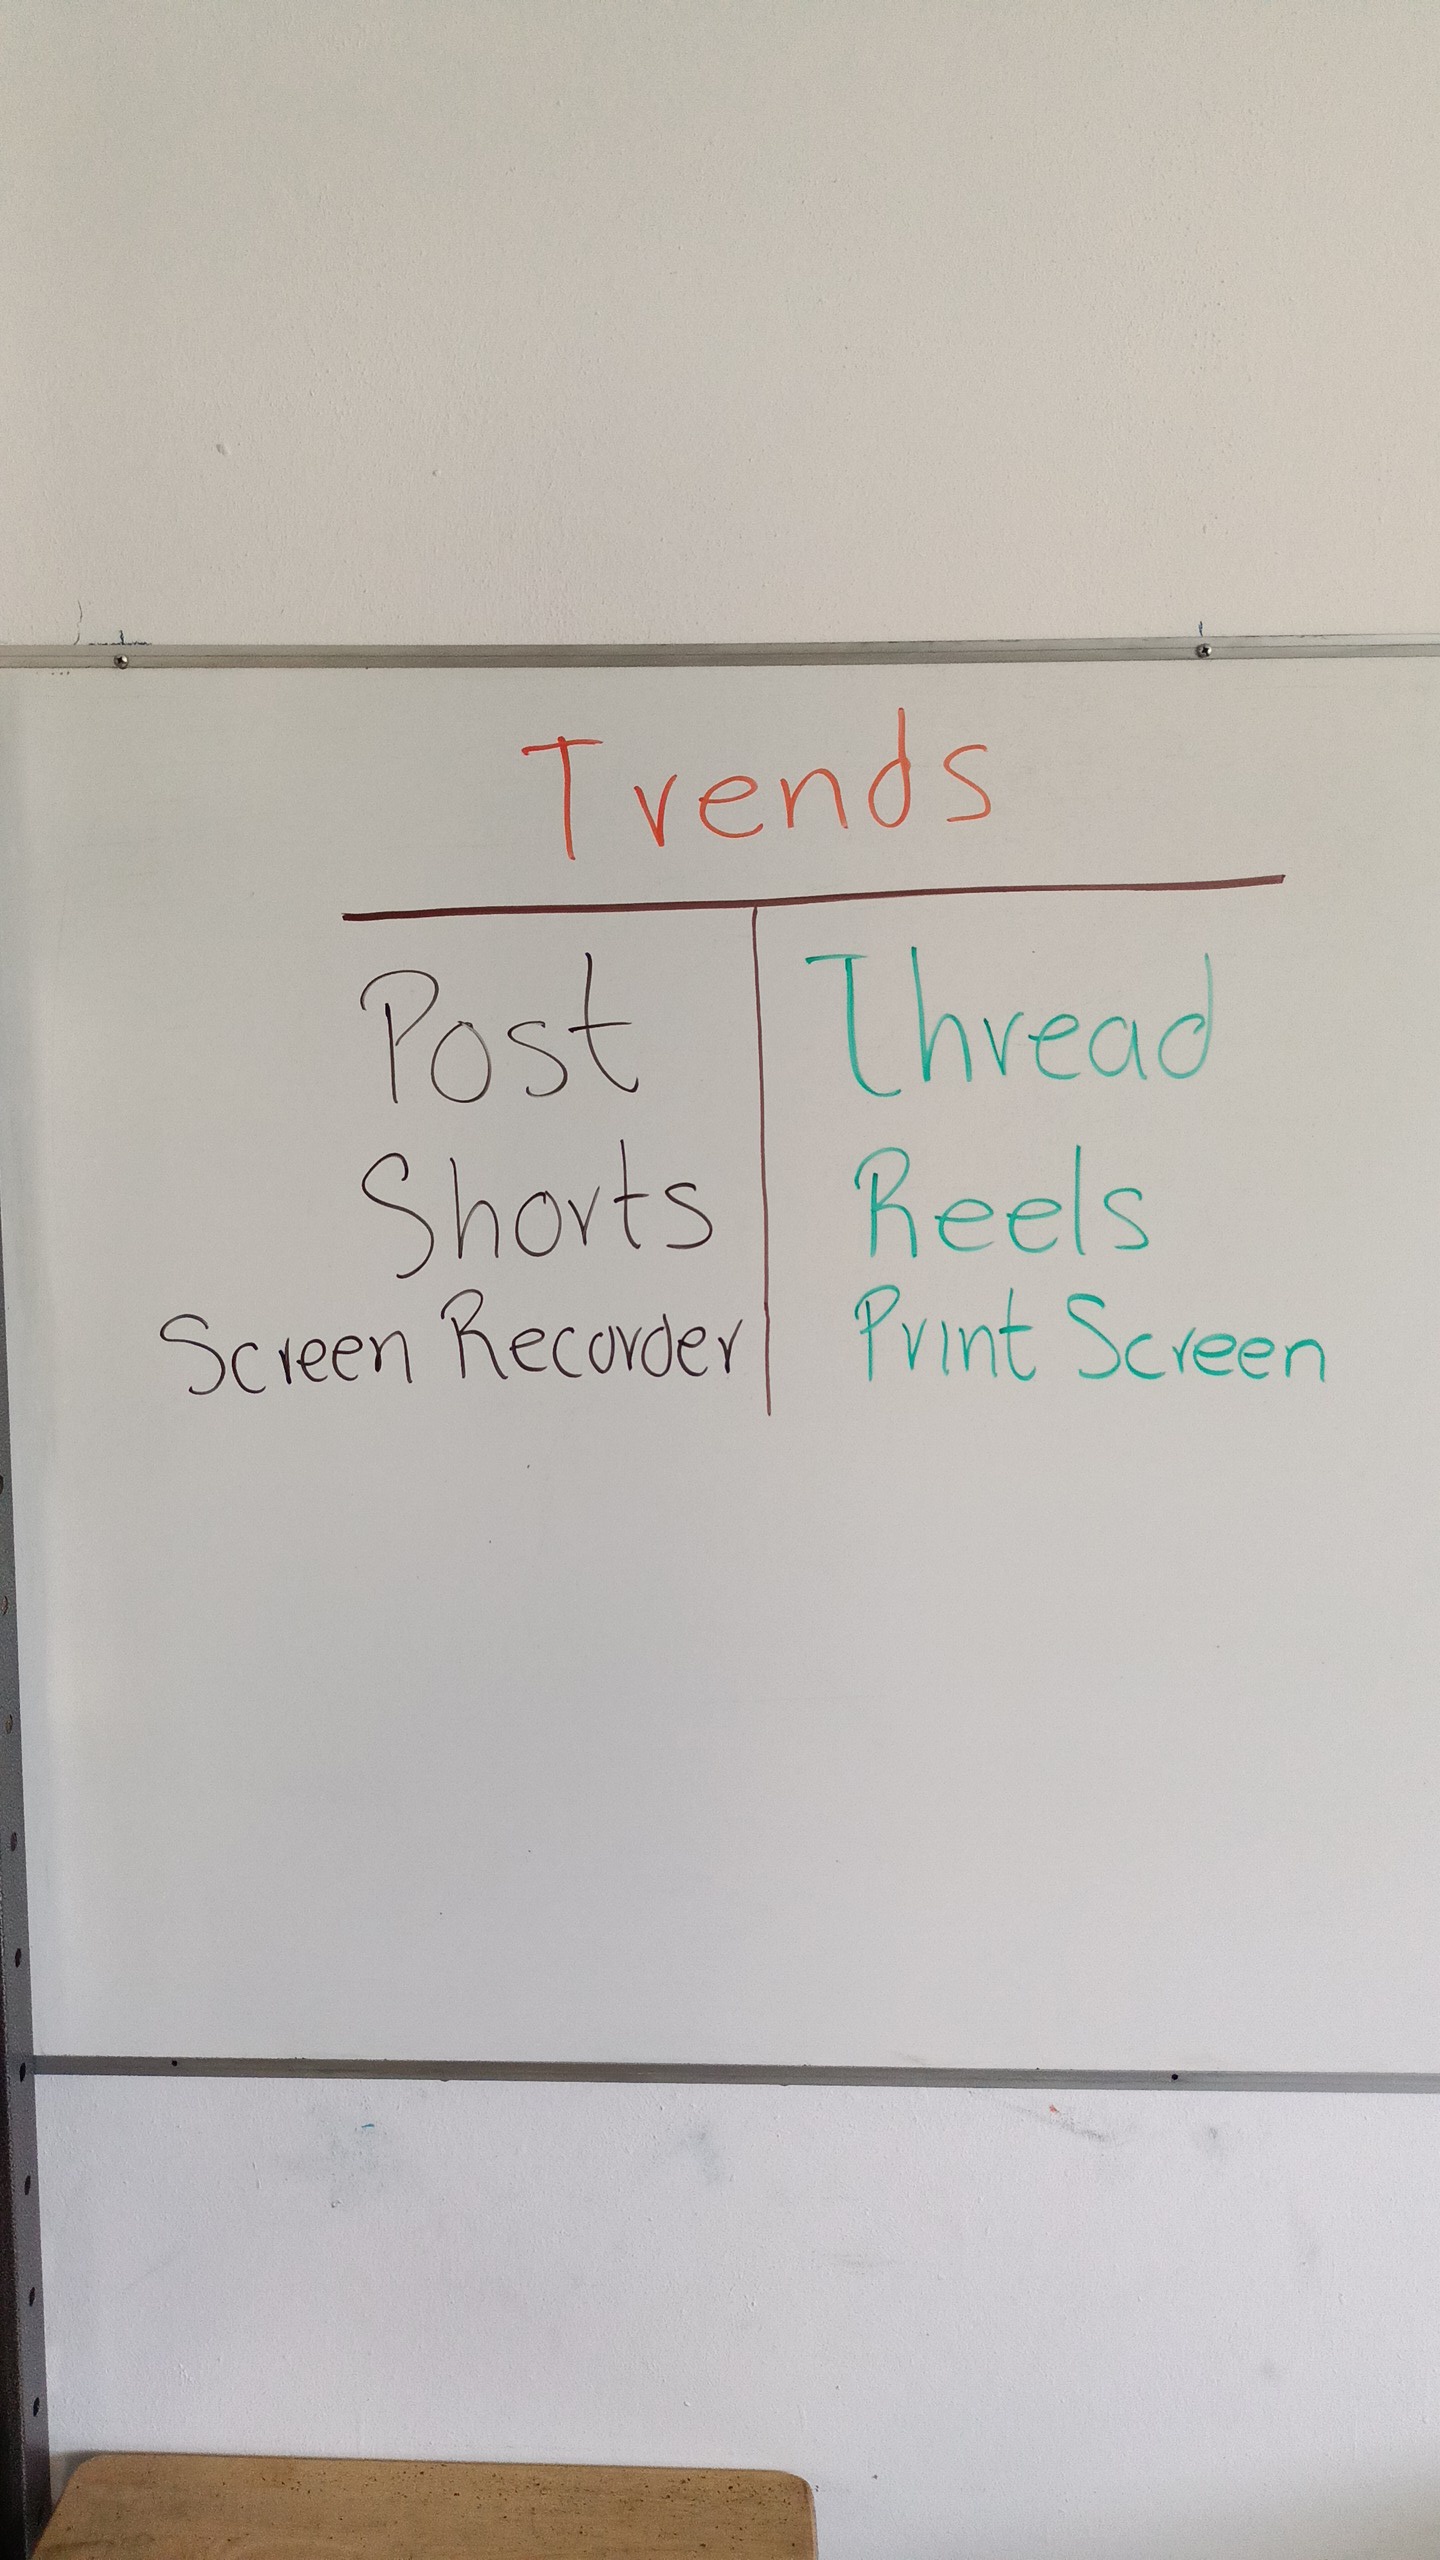 Trends
Post Thread
Shorts Reels
Screen Recorder Print Screen